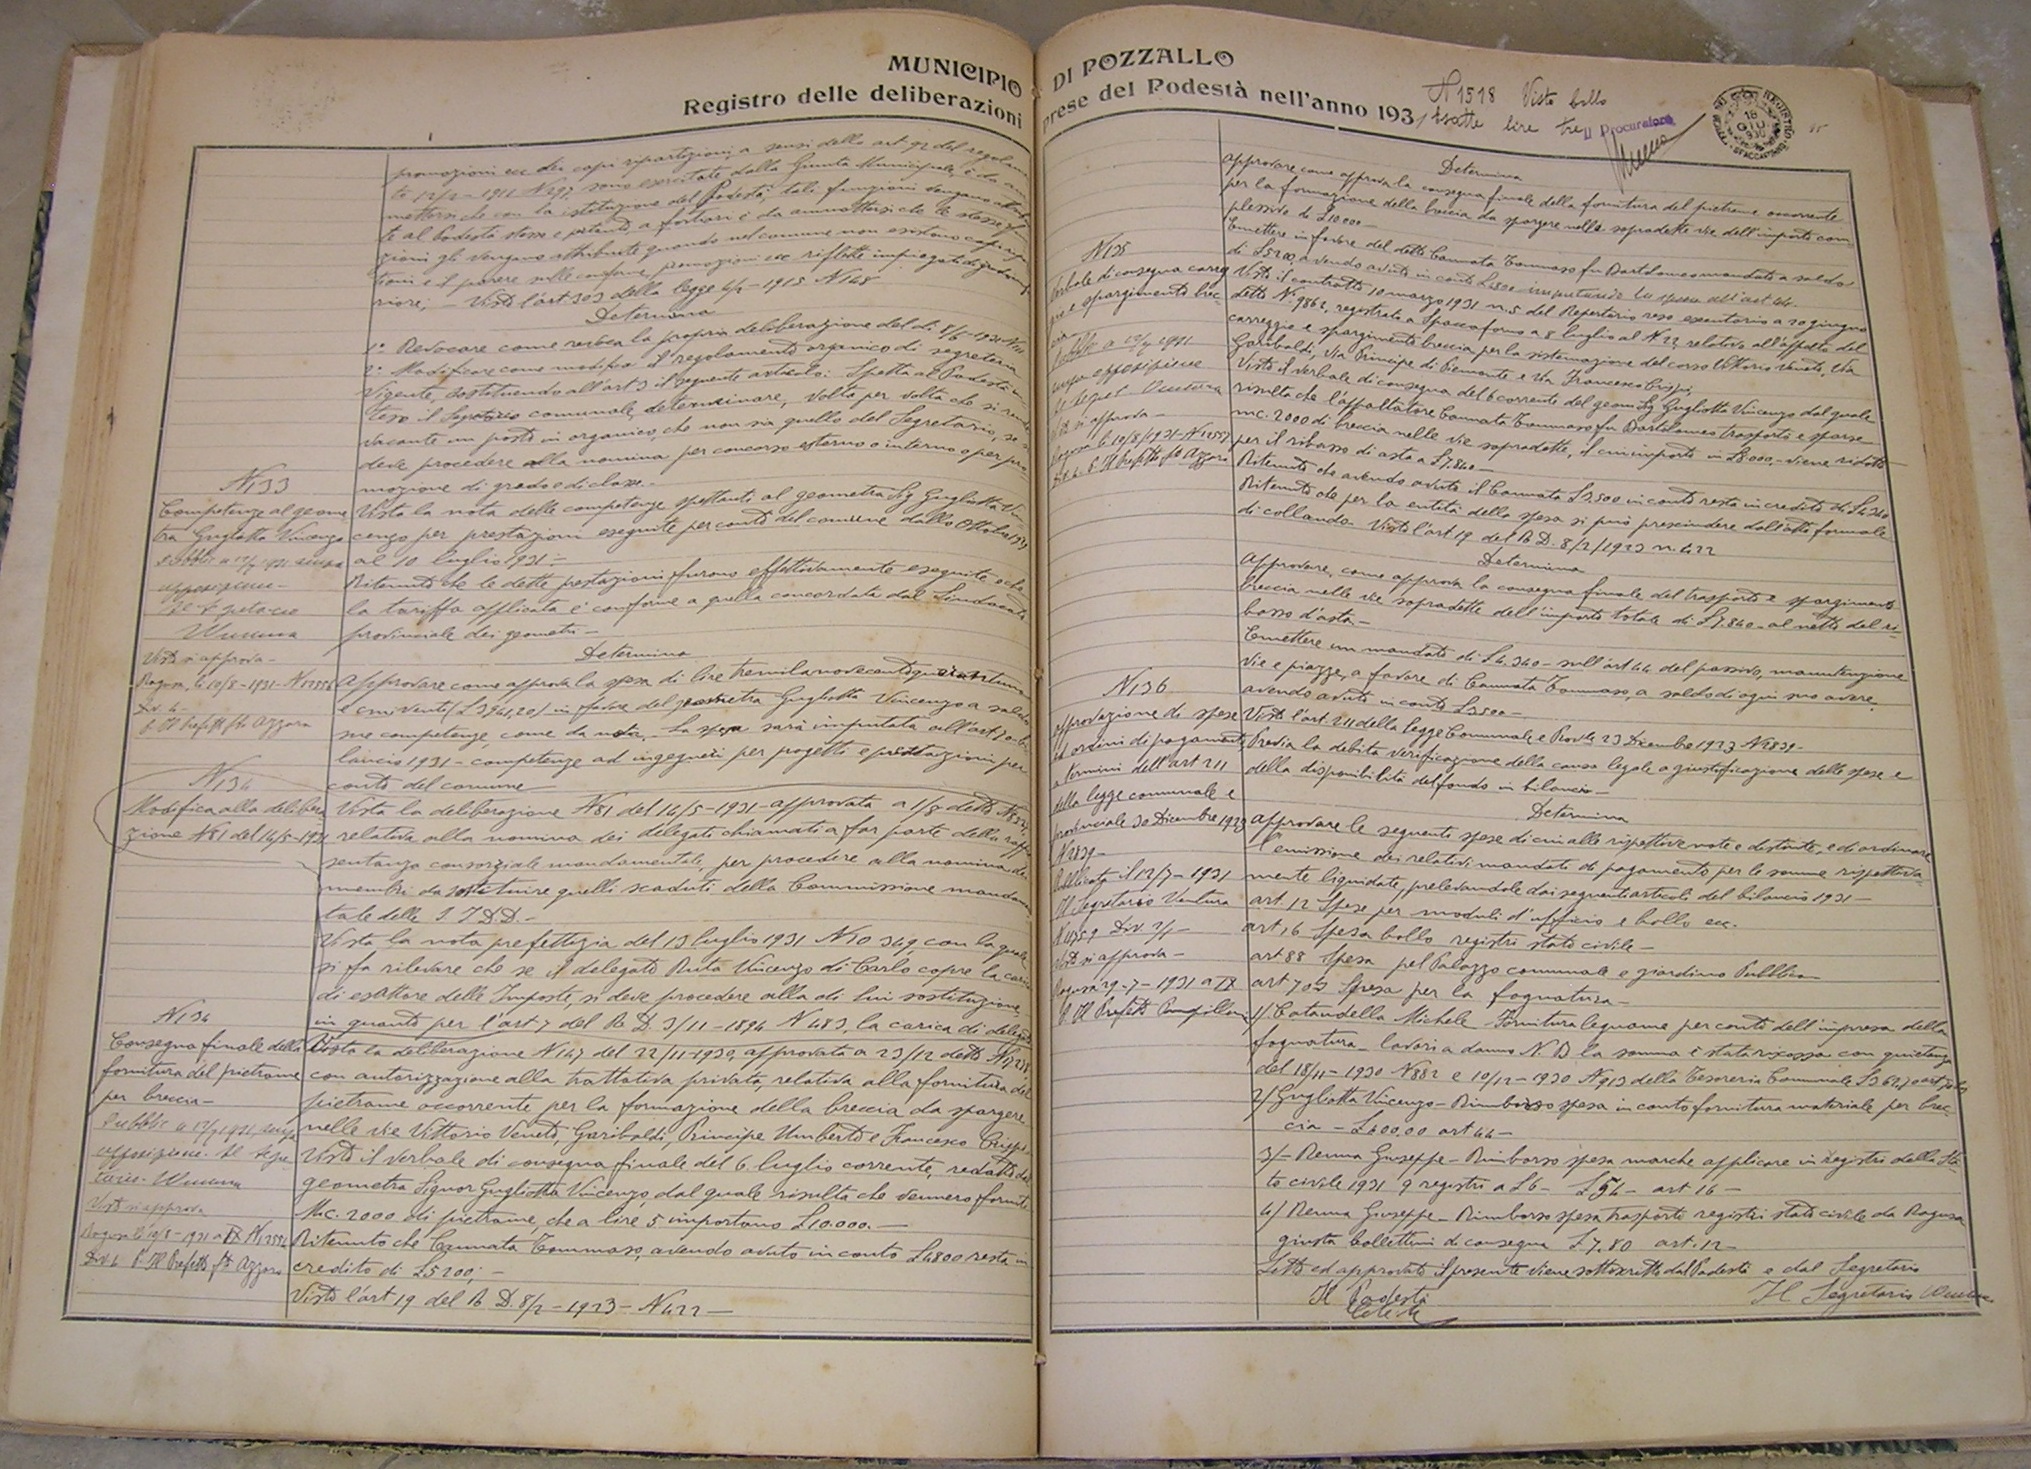 MUNICIPIO DI POZZALLO
Registro delle deliberazioni prese del Podestà nell'anno 193
N 1518 Visto bollo
Esatte lire tre
Il Procuratore
18
GIU
promozioni ecc dei capi ripartizioni, a sensi dello art 92 del regolamen
to 12/2-1911 N 297, sono esercitate dalla Giunta Municipale, è da am
mettersi che con la istituzione del Podestà, tali funzioni vengano attribui
te al Podestà stesso e pertanto a fortiori è da ammettersi che le stesse fun
zioni gli vengano attribuite quando nel comune non esistono capi ripar
tizioni e il parere sulle conferme, promozioni ecc riflette impiegati di grado infe
riore; - Visto l'art 303 della legge 4/2-1915 N 148
Determina
1° Revocare come revoca la propria deliberazione del dì 8/6-1931 N 111
2° Modificare come modifica il regolamento organico di segreteria
vigente, sostituendo all'art 3 il seguente articolo: Spetta al Podestà in
teso il Segretario comunale, determinare, volta per volta che si renda
vacante un posto in organico, che non sia quello del Segretario, se si
deve procedere alla nomina per concorso esterno o interno o per pro
mozione di grado e di classe.
N 133
Competenze al geome
tra Gugliotta Vincenzo
Pubblic a 12/7 1931 senza
opposizione -
Il Segretario
Ventura
Visto si approva -
Ragusa, li 10/8-1931-N 12556
Div. 4 -
P. Il Prefetto fto Azzaro
Vista la nota delle competenze spettanti al geometra Sig Gugliotta Vin
cenzo per prestazioni eseguite per conto del comune dallo Ottobre 1929
al 10 luglio 1931: -
Ritenuto che le dette prestazioni furono effettivamente eseguite e che
la tariffa applicata è conforme a quella concordata dal Sindacato
provinciale dei geometri -
Determina
Approvare come approva la spesa di lire tremilanovecentoquarantuna
e cmi venti (£ 3941,20) in favore del geometra Gugliotta Vincenzo a saldo
sue competenze, come da nota. La spesa sarà imputata all'art 70 bi
lancio 1931 - competenze ad ingegneri per progetti e prestazioni per
conto del comune
N 134
Modifica alla delibera
zione N 81 del 14/5-1931
Vista la deliberazione N 81 del 14/5-1931-approvata a 1/8 detto
relativa alla nomina dei delegati chiamati a far parte della rappre
sentanza consorziale mandamentale per procedere alla nomina dei
membri da sostituire quelli scaduti della Commissione mandamen
tale delle I I D D. -
Vista la nota prefettizia del 13 luglio 1931 N 10349, con la quale
si fa rilevare che se il delegato Ruta Vincenzo di Carlo copre la carica
di esattore delle Imposte, si deve procedere alla di lui sostituzione,
in quanto per l'art 7 del R D. 3/11-1894 N 483, la carica di delegato
N 134
Consegna finale della
fornitura del pietrame
per breccia -
Pubblic a 12/7 1931, senza
opposizione. Il Segre
tario Ventura
Visto si approva
Ragusa li 10/8-1931 a IX N 12554
Div 4 P. Il Prefetto fto Azzaro
Vista la deliberazione N 147 del 22/11-1930, approvata a 23/12 detto
con autorizzazione alla trattativa privata, relativa alla fornitura del
pietrame occorrente per la formazione della breccia da spargere
nelle vie Vittorio Veneto, Garibaldi, Principe Umberto e Francesco Crispi
Visto il verbale di consegna finale del 6 luglio corrente, redatto dal
geometra Signor Gugliotta Vincenzo, dal quale risulta che vennero forniti
Mc. 2000 di pietrame, che a lire 5 importano £ 10.000. -
Ritenuto che Cannata Tommaso, avendo avuto in conto £ 4800 resta in
credito di £ 5200; -
Visto l'art 19 del R D. 8/2-1923-N 422 -
Determina
approvare come approva la consegna finale della fornitura del pietrame occorrente
per la formazione della breccia da spargere nelle sopradette vie dell'importo com
plessivo di £ 10.000 -
Emettere in favore del detto Cannata Tommaso fu Bartolomeo mandato a saldo
di £ 5200, avendo avuto in conto £ 4800 imputando la spesa all'art 44.
N 135
Verbale di consegna carreg
gio e spargimento brec
cia
Pubblic a 12/7 1931
senza opposizione
Il Segret Ventura
Visto si approva -
Ragusa li 10/8/1931-N 12557
Div. 4. P. Il Prefetto fto Azzaro
Visto il contratto 10 marzo 1931 n. 5 del Repertorio reso esecutorio a 20 giugno
detto N. 9862, registrato a Spaccaforno a 8 luglio al N. 22 relativo all'appalto del
carreggio e spargimento breccia per la sistemazione del corso Vittorio Veneto, Via
Garibaldi, Via Principe di Piemonte e Via Francesco Crispi;
Visto il verbale di consegna del 6 corrente del geom. Sig Gugliotta Vincenzo dal quale
risulta che l'appaltatore Cannata Tommaso fu Bartolomeo trasportò e sparse
mc. 2000 di breccia nelle vie sopradette, il cui importo in £ 8000,- viene ridotto
per il ribasso di asta a £ 7.840 -
Ritenuto che avendo avuto il Cannata £ 3.500 in conto resta in credito di £ 4.340
Ritenuto che per la entità della spesa si può prescindere dall'atto formale
di collaudo - Visto l'art 19 del R D. 8/2/1923 n. 422
Determina
Approvare, come approva la consegna finale del trasporto e spargimento
breccia nelle vie sopradette dell'importo totale di £ 7.840 - al netto del ri-
basso d'asta -
Emettere un mandato di £ 4.340 - sull'art 44 del passivo, manutenzione
vie e piazze, a favore di Cannata Tommaso, a saldo di ogni suo avere,
avendo avuto in conto £ 3500 -
N 136
Approvazione di spese
ed ordini di pagamento
a termini dell'art 211
della legge comunale e
provinciale 30 Dicembre 1923
N 2839 -
Pubblicata il 12/7-1931
Il Segretario Ventura
N 11759 Div. 2/1 -
Visto si approva -
Ragusa 29-7-1931 a IX
P. Il Prefetto
Visto l'art. 211 della legge Comunale e Provle 23 Dicembre 1923 N 2839 -
Previa la debita verificazione della causa legale o giustificazione delle spese e
della disponibilità del fondo in bilancio -
Determina
Approvare le seguenti spese di cui alle rispettive note e distinte, e di ordinare
l'emissione dei relativi mandati di pagamento per le somme rispettiva-
mente liquidate, prelevandole dai seguenti articoli del bilancio 1931 -
art 12 Spese per moduli d'ufficio e bollo ecc.
art 16 Spesa bollo registri stato civile -
art 88 Spesa pel Palazzo comunale e giardino Pubblico
art 70 Spesa per la fognatura -
1/ Cataudella Michele - Fornitura legname per conto dell'impresa della
fognatura - lavori a danno N. B la somma è stata riscossa con quietanza
del 18/11-1930 N 882 e 10/12-1930 N 913 della Tesoreria Comunale
2/ Gugliotta Vincenzo - Rimborso spesa in conto fornitura materiale per brec
cia - £ 400,00 art 44 -
3/ - Renna Giuseppe - Rimborso spesa marche applicate in registri dello Sta
to civile 1931 9 registri a £ 6 - £ 54 - art 16 -
4/ Renna Giuseppe - Rimborso spesa trasporto registri stato civile da Ragusa
giusta bollettini di consegna £ 7.80 art. 12 -
Letto ed approvato il presente viene sottoscritto dal Podestà e dal Segretario
Il Podestà
Il Segretario Ventura